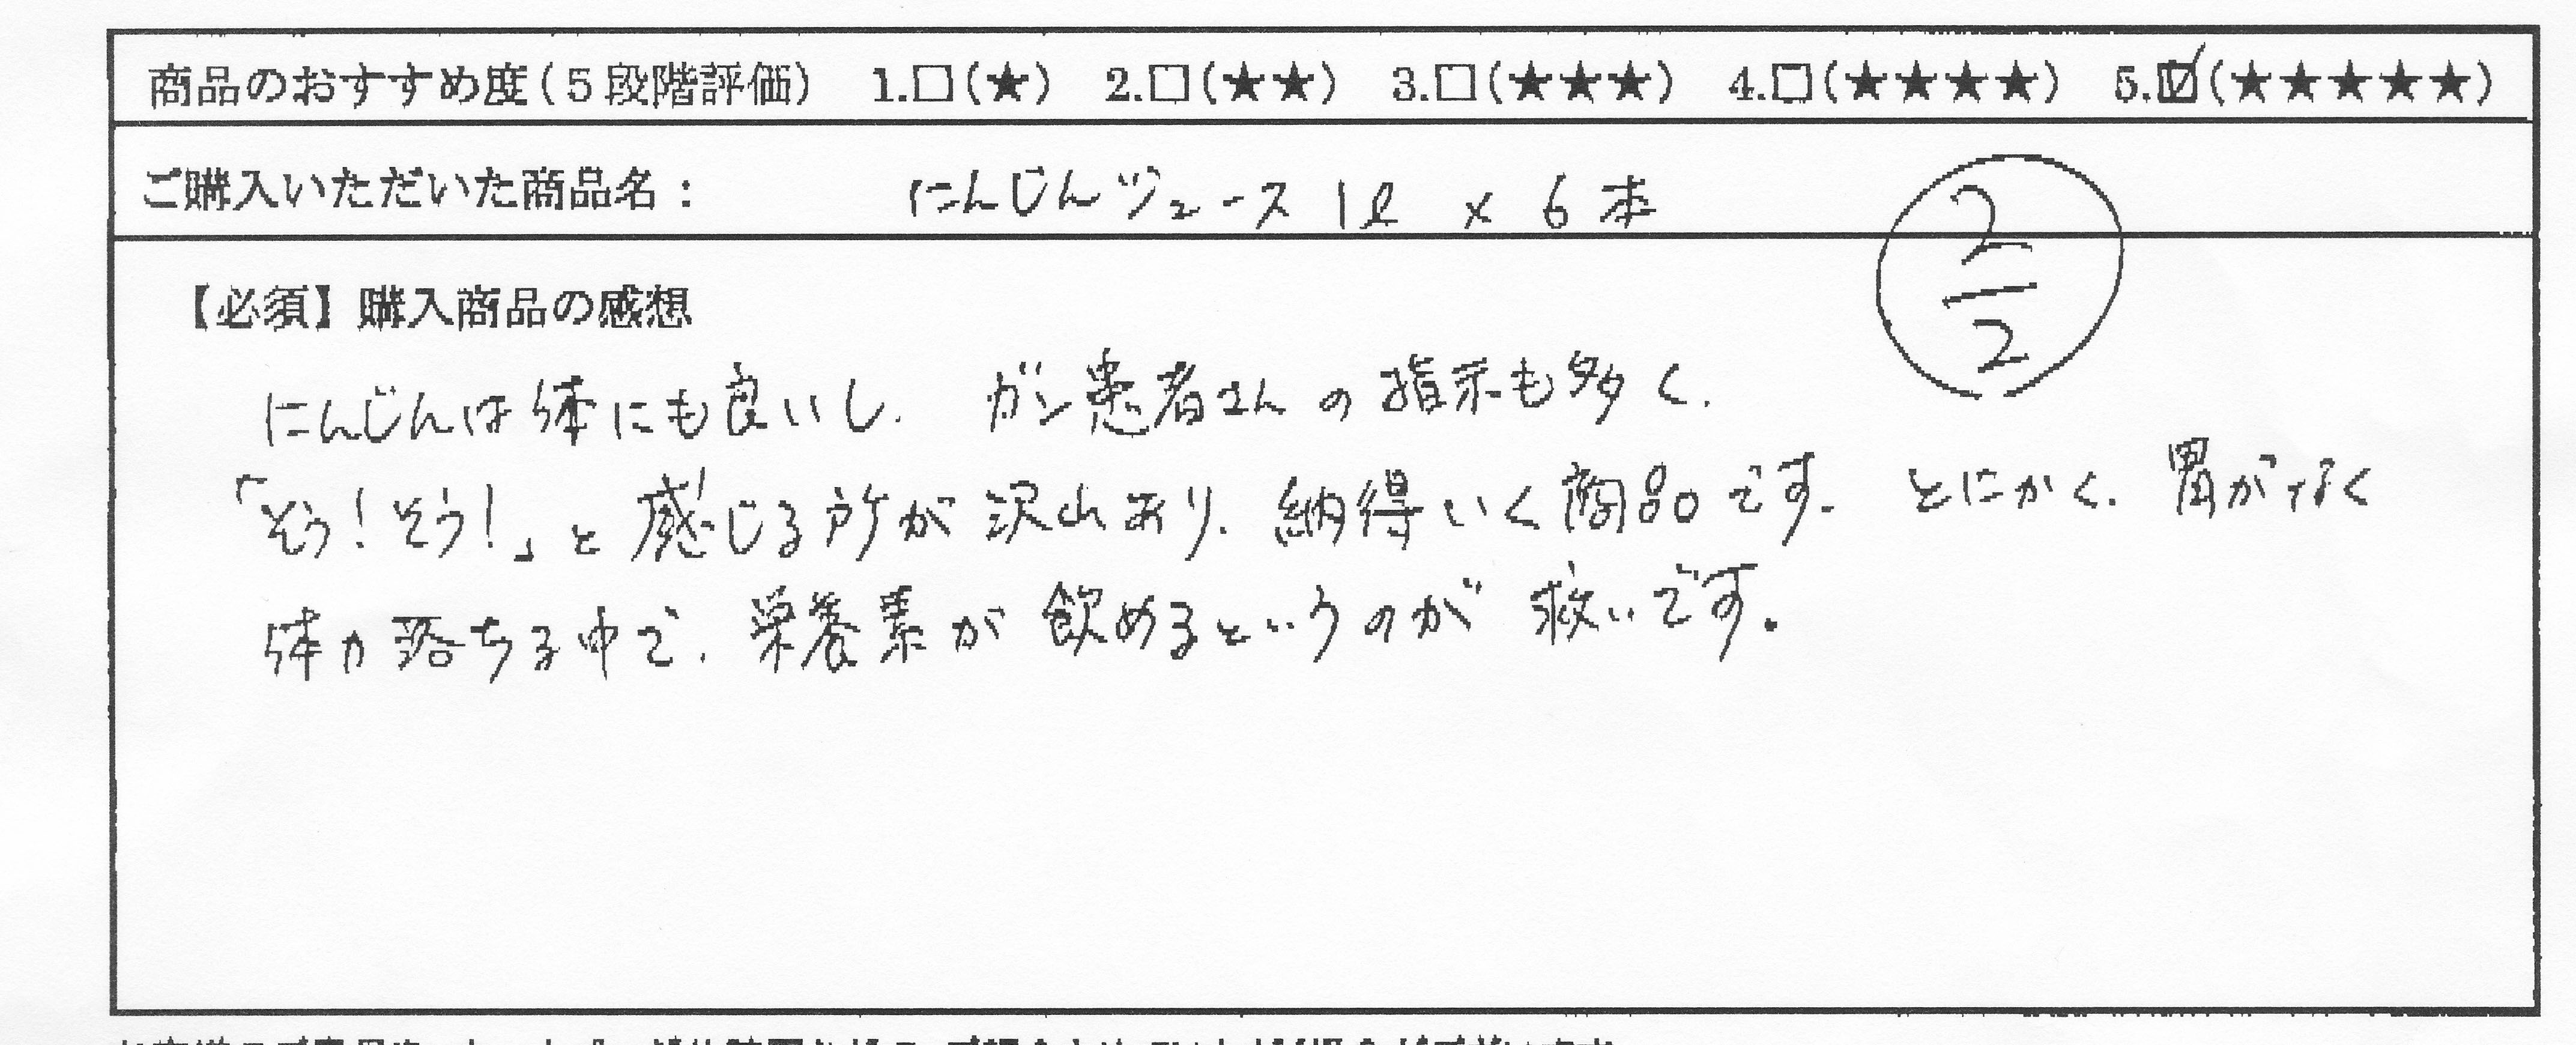 商品のおすすめ度(5段階評価) 1.□(★) 2.□(★★) 3.□(★★★) 4.□(★★★★) 5.☑(★★★★★)
ご購入いただいた商品名: にんじんジュース 1ℓ × 6本
2/2
【必須】購入商品の感想
にんじんは体にも良いし、ガン患者さんの指示も多く、
「そう!そう!」と感じる所が沢山あり、納得いく商品です。とにかく、胃が
体力落ちる中で、栄養素が飲めるというのが救いです。